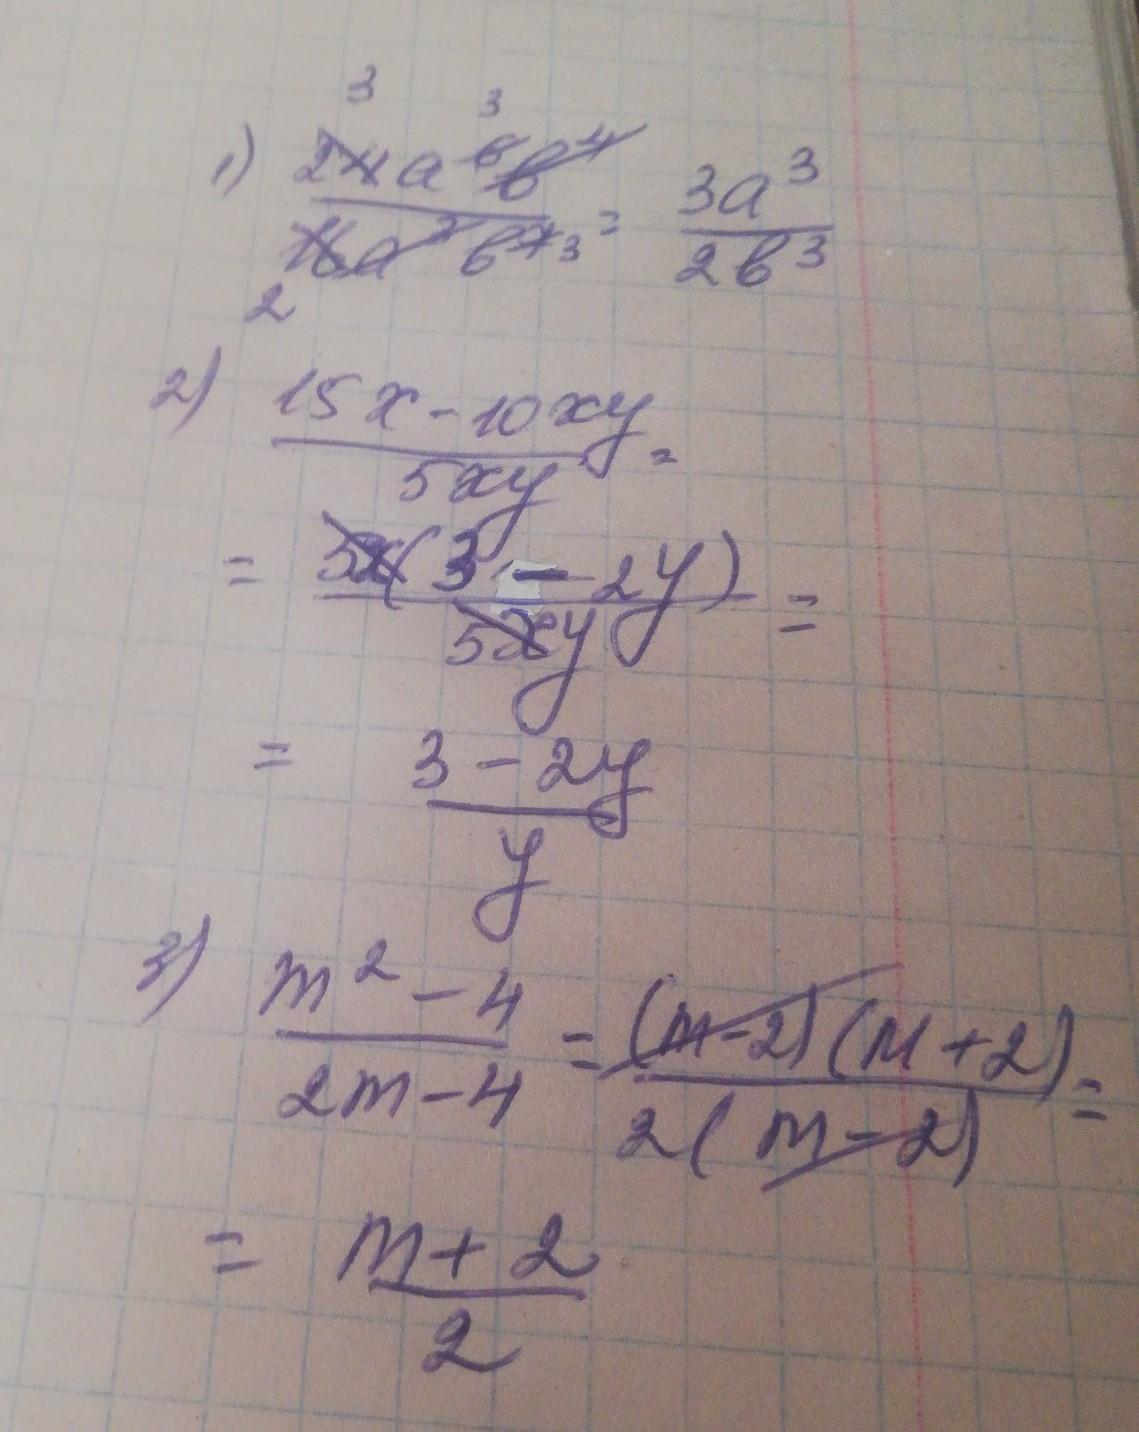 3 3
1) 24a⁶b⁴ / 16a³b⁷ 3 = 3a³ / 2b³
2
2) 15x - 10xy / 5xy =
= 5x(3 - 2y) / 5xy =
= 3 - 2y / y
3) m² - 4 / 2m - 4 = (m-2)(m+2) / 2(m-2) =
= m + 2 / 2